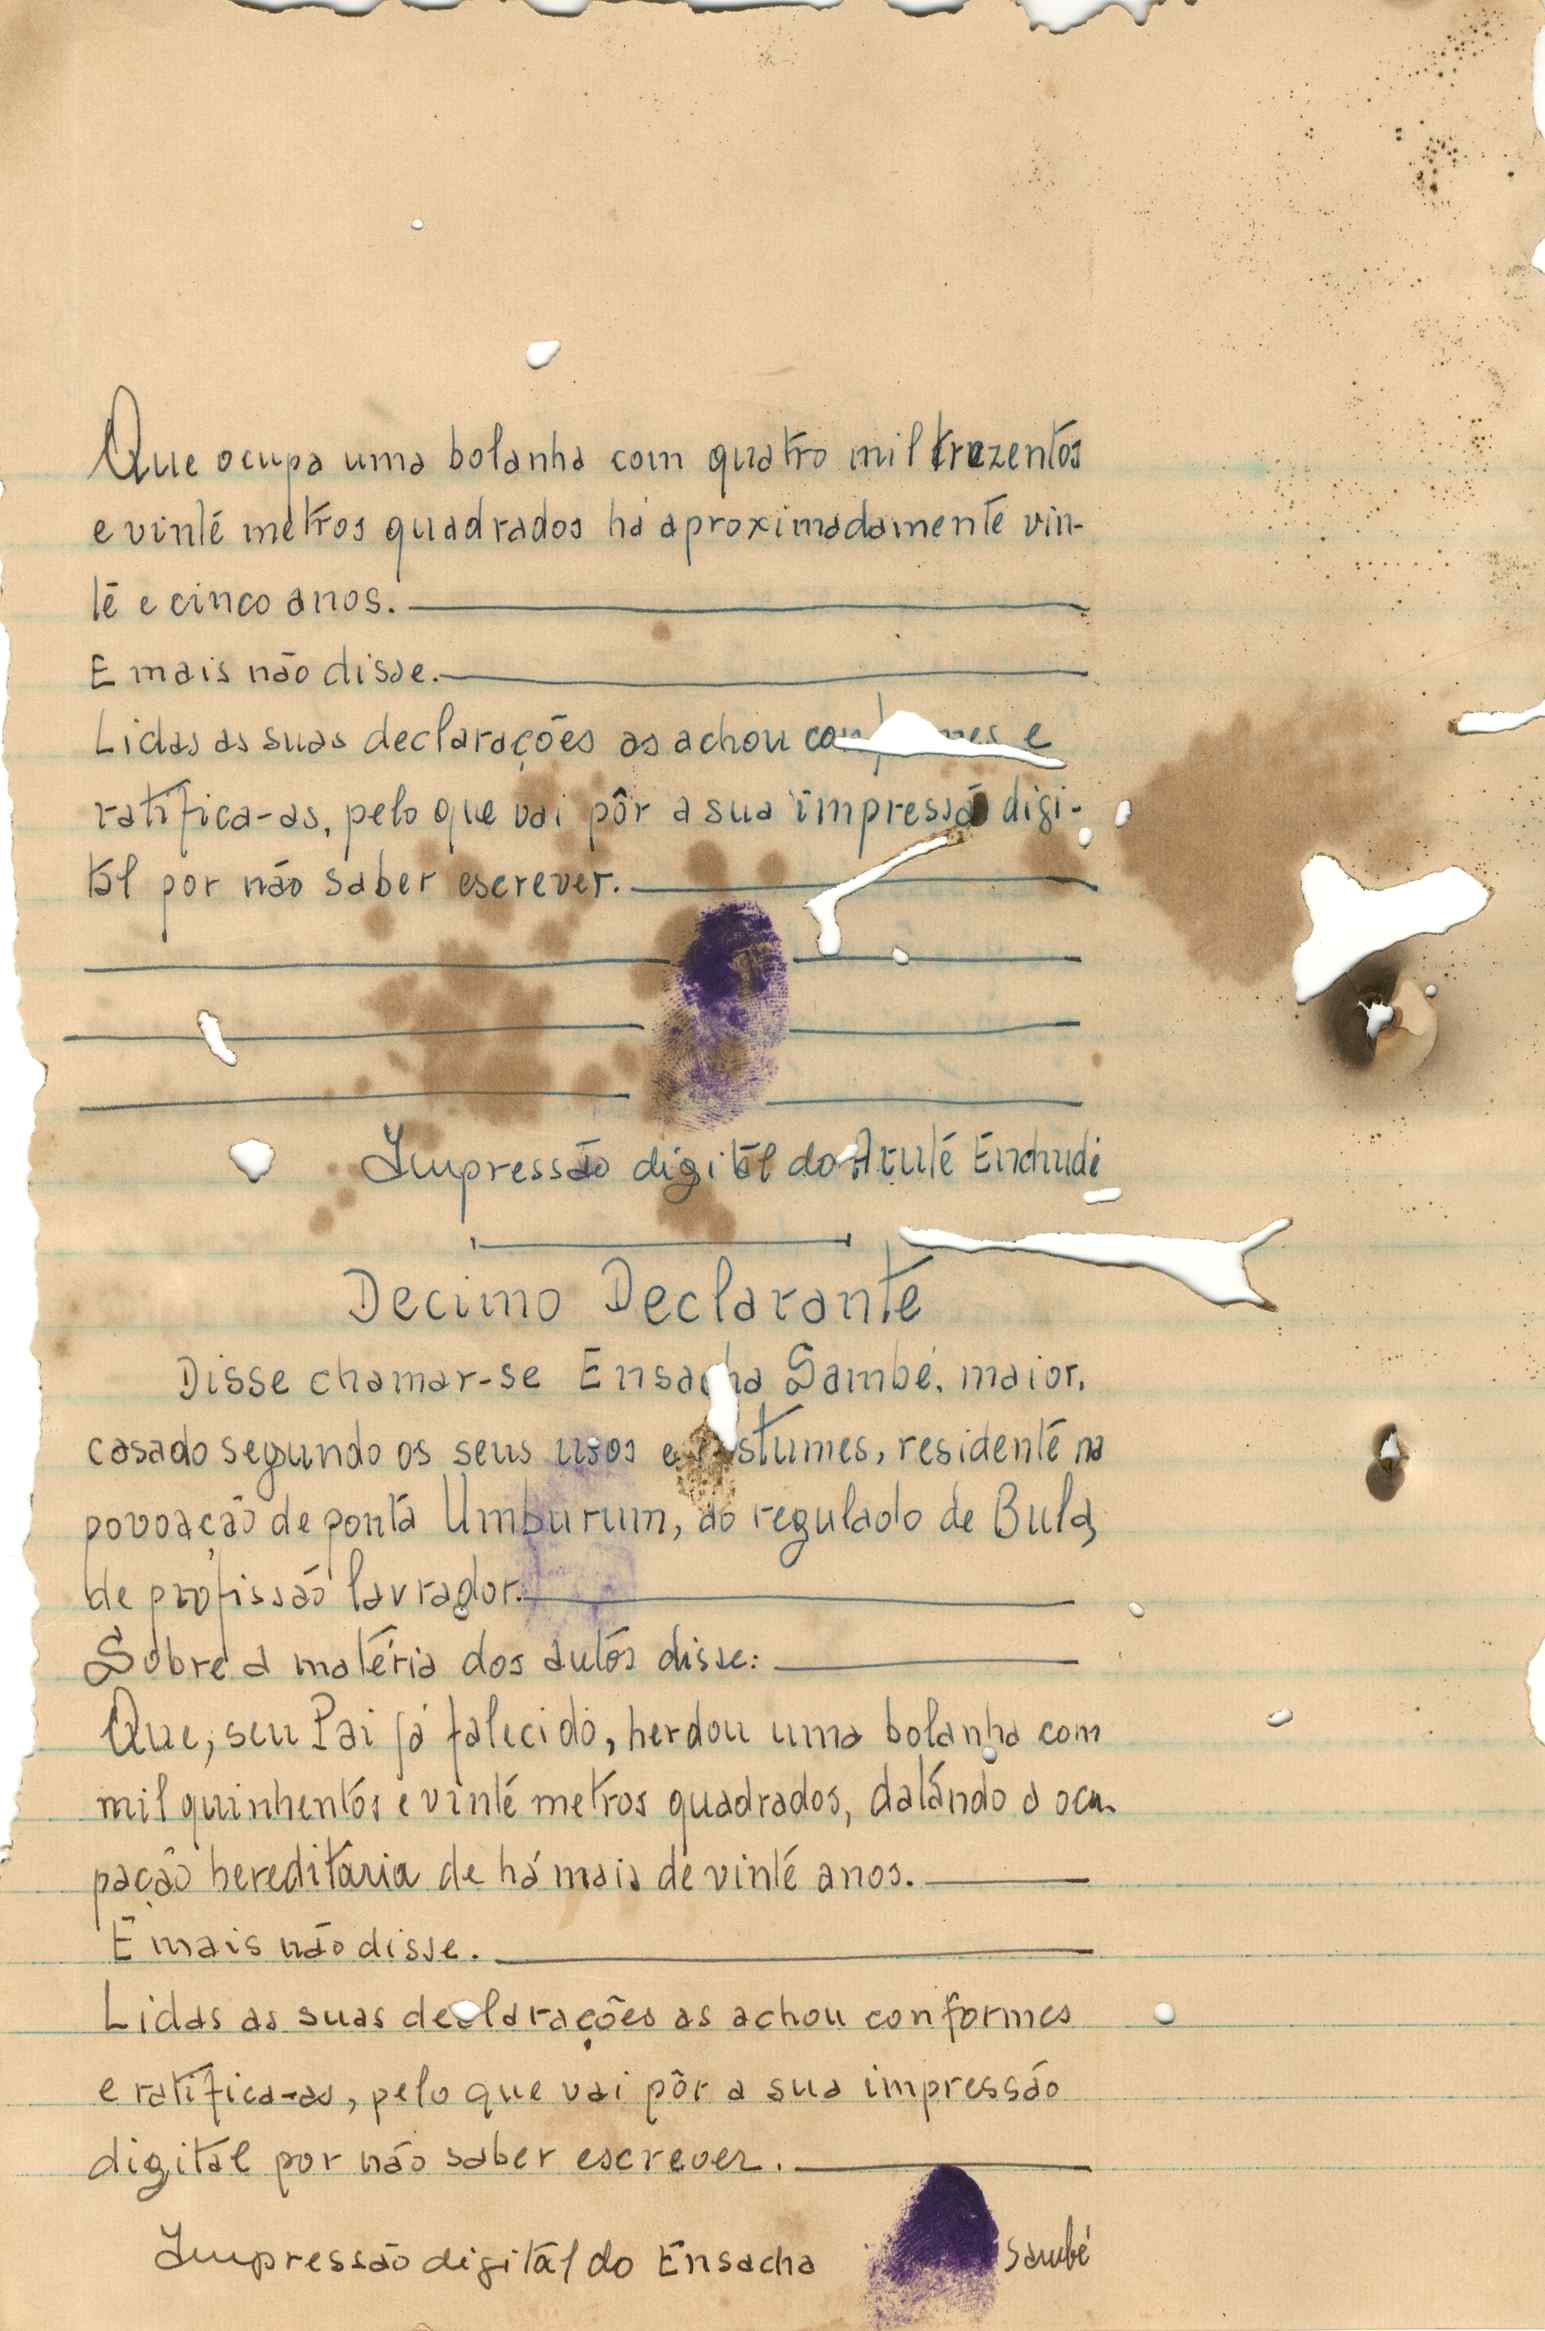 Que ocupa uma bolanha com quatro mil trezentos
e vinte metros quadrados há aproximadamente vin-
te e cinco anos.
E mais não disse.
Lidas as suas declarações as achou conformes e
ratifica-as, pelo que vai pôr a sua impressão digi-
tal por não saber escrever.
Impressão digital do Aruté Enchudé
Decimo Declarante
Disse chamar-se Ensacha Sambé, maior,
casado segundo os seus usos e costumes, residente na
povoação de ponta Umburum, do regulado de Bula,
de profissão lavrador.
Sobre a matéria dos autos disse:
Que, seu Pai já falecido, herdou uma bolanha com
mil quinhentos e vinte metros quadrados, datando a ocu-
pação hereditária de há mais de vinte anos.
E mais não disse.
Lidas as suas declarações as achou conformes
e ratifica-as, pelo que vai pôr a sua impressão
digital por não saber escrever.
Impressão digital do Ensacha Sambé